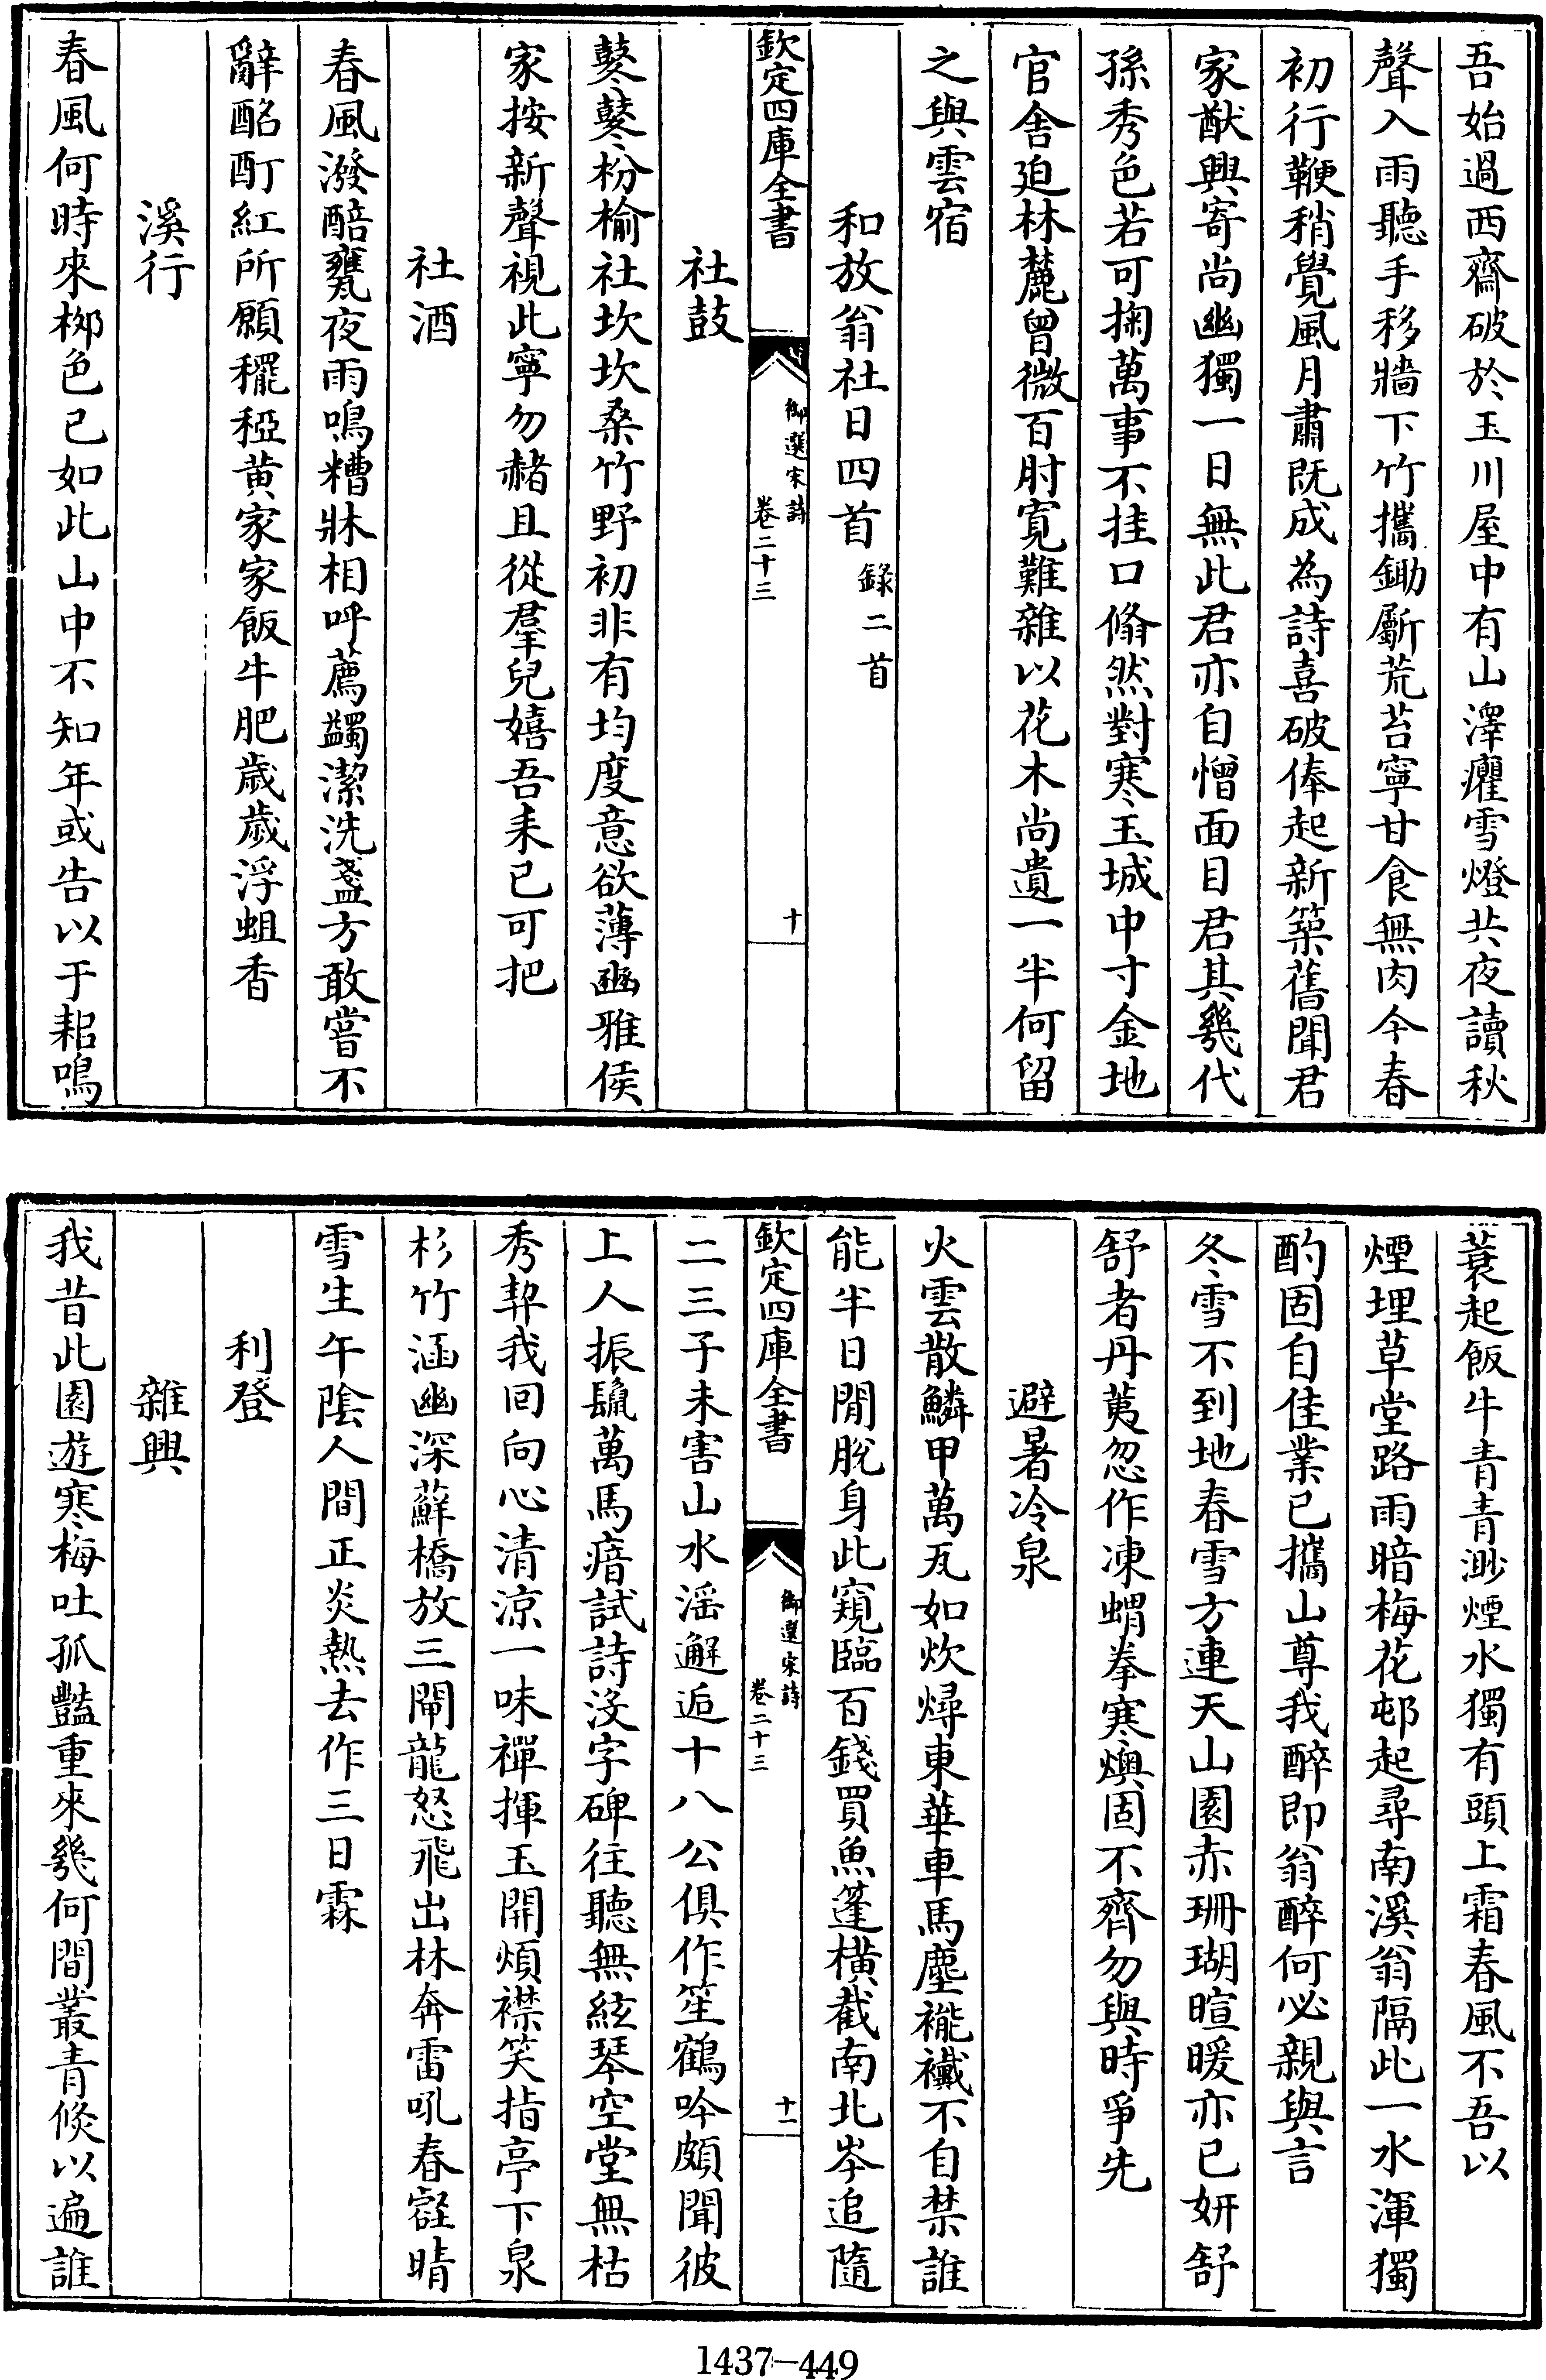 吾始過西齋破於玉川屋中有山澤癯雪燈共夜讀秋
聲入雨聽手移牆下竹攜鋤斸荒苔寧甘食無肉今春
初行鞭稍覺風月肅既成為詩喜破俸起新築舊聞君
家猷興寄尚幽獨一日無此君亦自憎面目君其幾代
孫秀色若可掬萬事不挂口翛然對寒玉城中寸金地
官舍迫林麓曾微百肘寛難雜以花木尚遺一半何留
之與雲宿
和放翁社日四首錄二首
欽定四庫全書
御選宋詩
卷二十三
十
社鼓
鼕鼕枌榆社坎坎桑竹野初非有均度意欲薄豳雅侯
家按新聲視此寧勿赭且從羣兒嬉吾耒已可把
社酒
春風潑醅甕夜雨鳴糟牀相呼薦蠲潔洗盞方敢嘗不
辭酩酊紅所願䆉稏黄家家飯牛肥歳歳浮蛆香
溪行
春風何時來柳色已如此山中不知年或告以于耜鳴
蓑起飯牛青青渺煙水獨有頭上霜春風不吾以
煙埋草堂路雨暗梅花邨起尋南溪翁隔此一水渾獨
酌固自佳業已攜山尊我醉即翁醉何必親與言
冬雪不到地春雪方連天山園赤珊瑚暄暖亦已妍舒
舒者丹荑忽作凍蝟拳寒燠固不齊勿與時爭先
避暑冷泉
火雲散鱗甲萬瓦如炊燖東華車馬塵襶襶不自禁誰
能半日閒脫身此窺臨百錢買魚蓬橫截南北岑追隨
欽定四庫全書
御選宋詩
卷二十三
十一
二三子未害山水滛邂逅十八公俱作笙鶴吟頗聞彼
上人振鬣萬馬瘖試詩沒字碑往聽無絃琴空堂無枯
秀契我回向心清涼一味禪揮玉開煩襟笑指亭下泉
杉竹涵幽深蘚橋放三閘龍怒飛出林奔雷吼春容晴
雪生午陰人間正炎熱去作三日霖
利登
雜興
我昔此園遊寒梅吐孤豔重來幾何間叢青倐以遍誰
1437—449